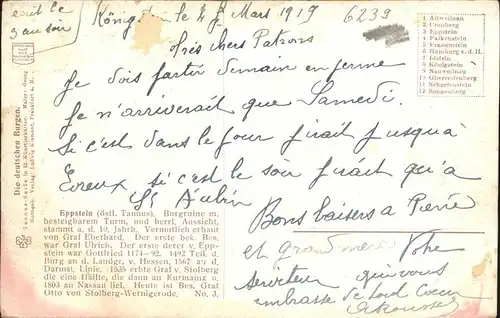 écrit le
3 au soir
Königstein le 4 Mars 1919
6239
très chers Patrons
Je dois partir demain en perme
Je n'arriverait que Samedi.
Si c'est dans le jour j'irait jusqu'à
Evreux si c'est le soir j'irait qu'à
St Aubin
Bons baisers a Pierre
et grand mère Votre
serviteur qui vous
embrasse de tout Coeur
1 Altweilnau
2 Cronberg
3 Eppstein
4 Falkenstein
5 Fraunstein
6 Homburg v. d. H.
7 Idstein
8 Königstein
9 Neuweilnau
10 Oberreifenberg
11 Scharfenstein
12 Sonnenberg
Die deutschen Burgen.
Taunus-Serie in 12 Künstlerkarten. Maler: Georg
Verlag: Ludwig Klement, Frankfurt a. M.
Eppstein (östl. Taunus), Burgruine m.
besteigbarem Turm, und herrl. Aussicht,
stammt a. d. 10. Jahrh. Vermutlich erbaut
von Graf Eberhard. Der erste bek. Bes.
war Graf Ulrich. Der erste der v. Epp-
stein war Gottfried 1174—92. 1492 Teil d.
Burg an d. Landgr. v. Hessen, 1567 an d.
Darmst. Linie. 1535 erbte Graf v. Stolberg
die eine Hälfte, die dann an Kurmainz u.
1803 an Nassau fiel. Heute ist Bes. Graf
Otto von Stolberg-Wernigerode. No. 3.